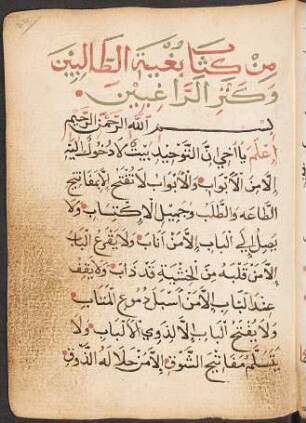 مِنْ كِتَابِ بُغْيَةِ الطَّالِبِيْنَ
وَكَنْزِ الرَّاغِبِيْنَ
بسم اللّه الرّحمن الرّحيم
اِعْلَمْ يا اخي انّ التّوحيد بيتٌ لا دخول اليه
الّا من الأبواب والأبواب لا تُفتح الّا بمفاتيح
الطّاعه والطّلب وجميل الإكتساب ولا
يصل إلى الباب الّا من أناب ولا يقرع الباب
الّا من قلبه من الخشية قد ذاب ولا يقف
عند الباب الّا من أسبل دموع المتاب
ولا يفتح الباب الّا لذوي الألباب ولا
يتسلّم مفاتيح الشّوق الّا من حلا له الذّوق